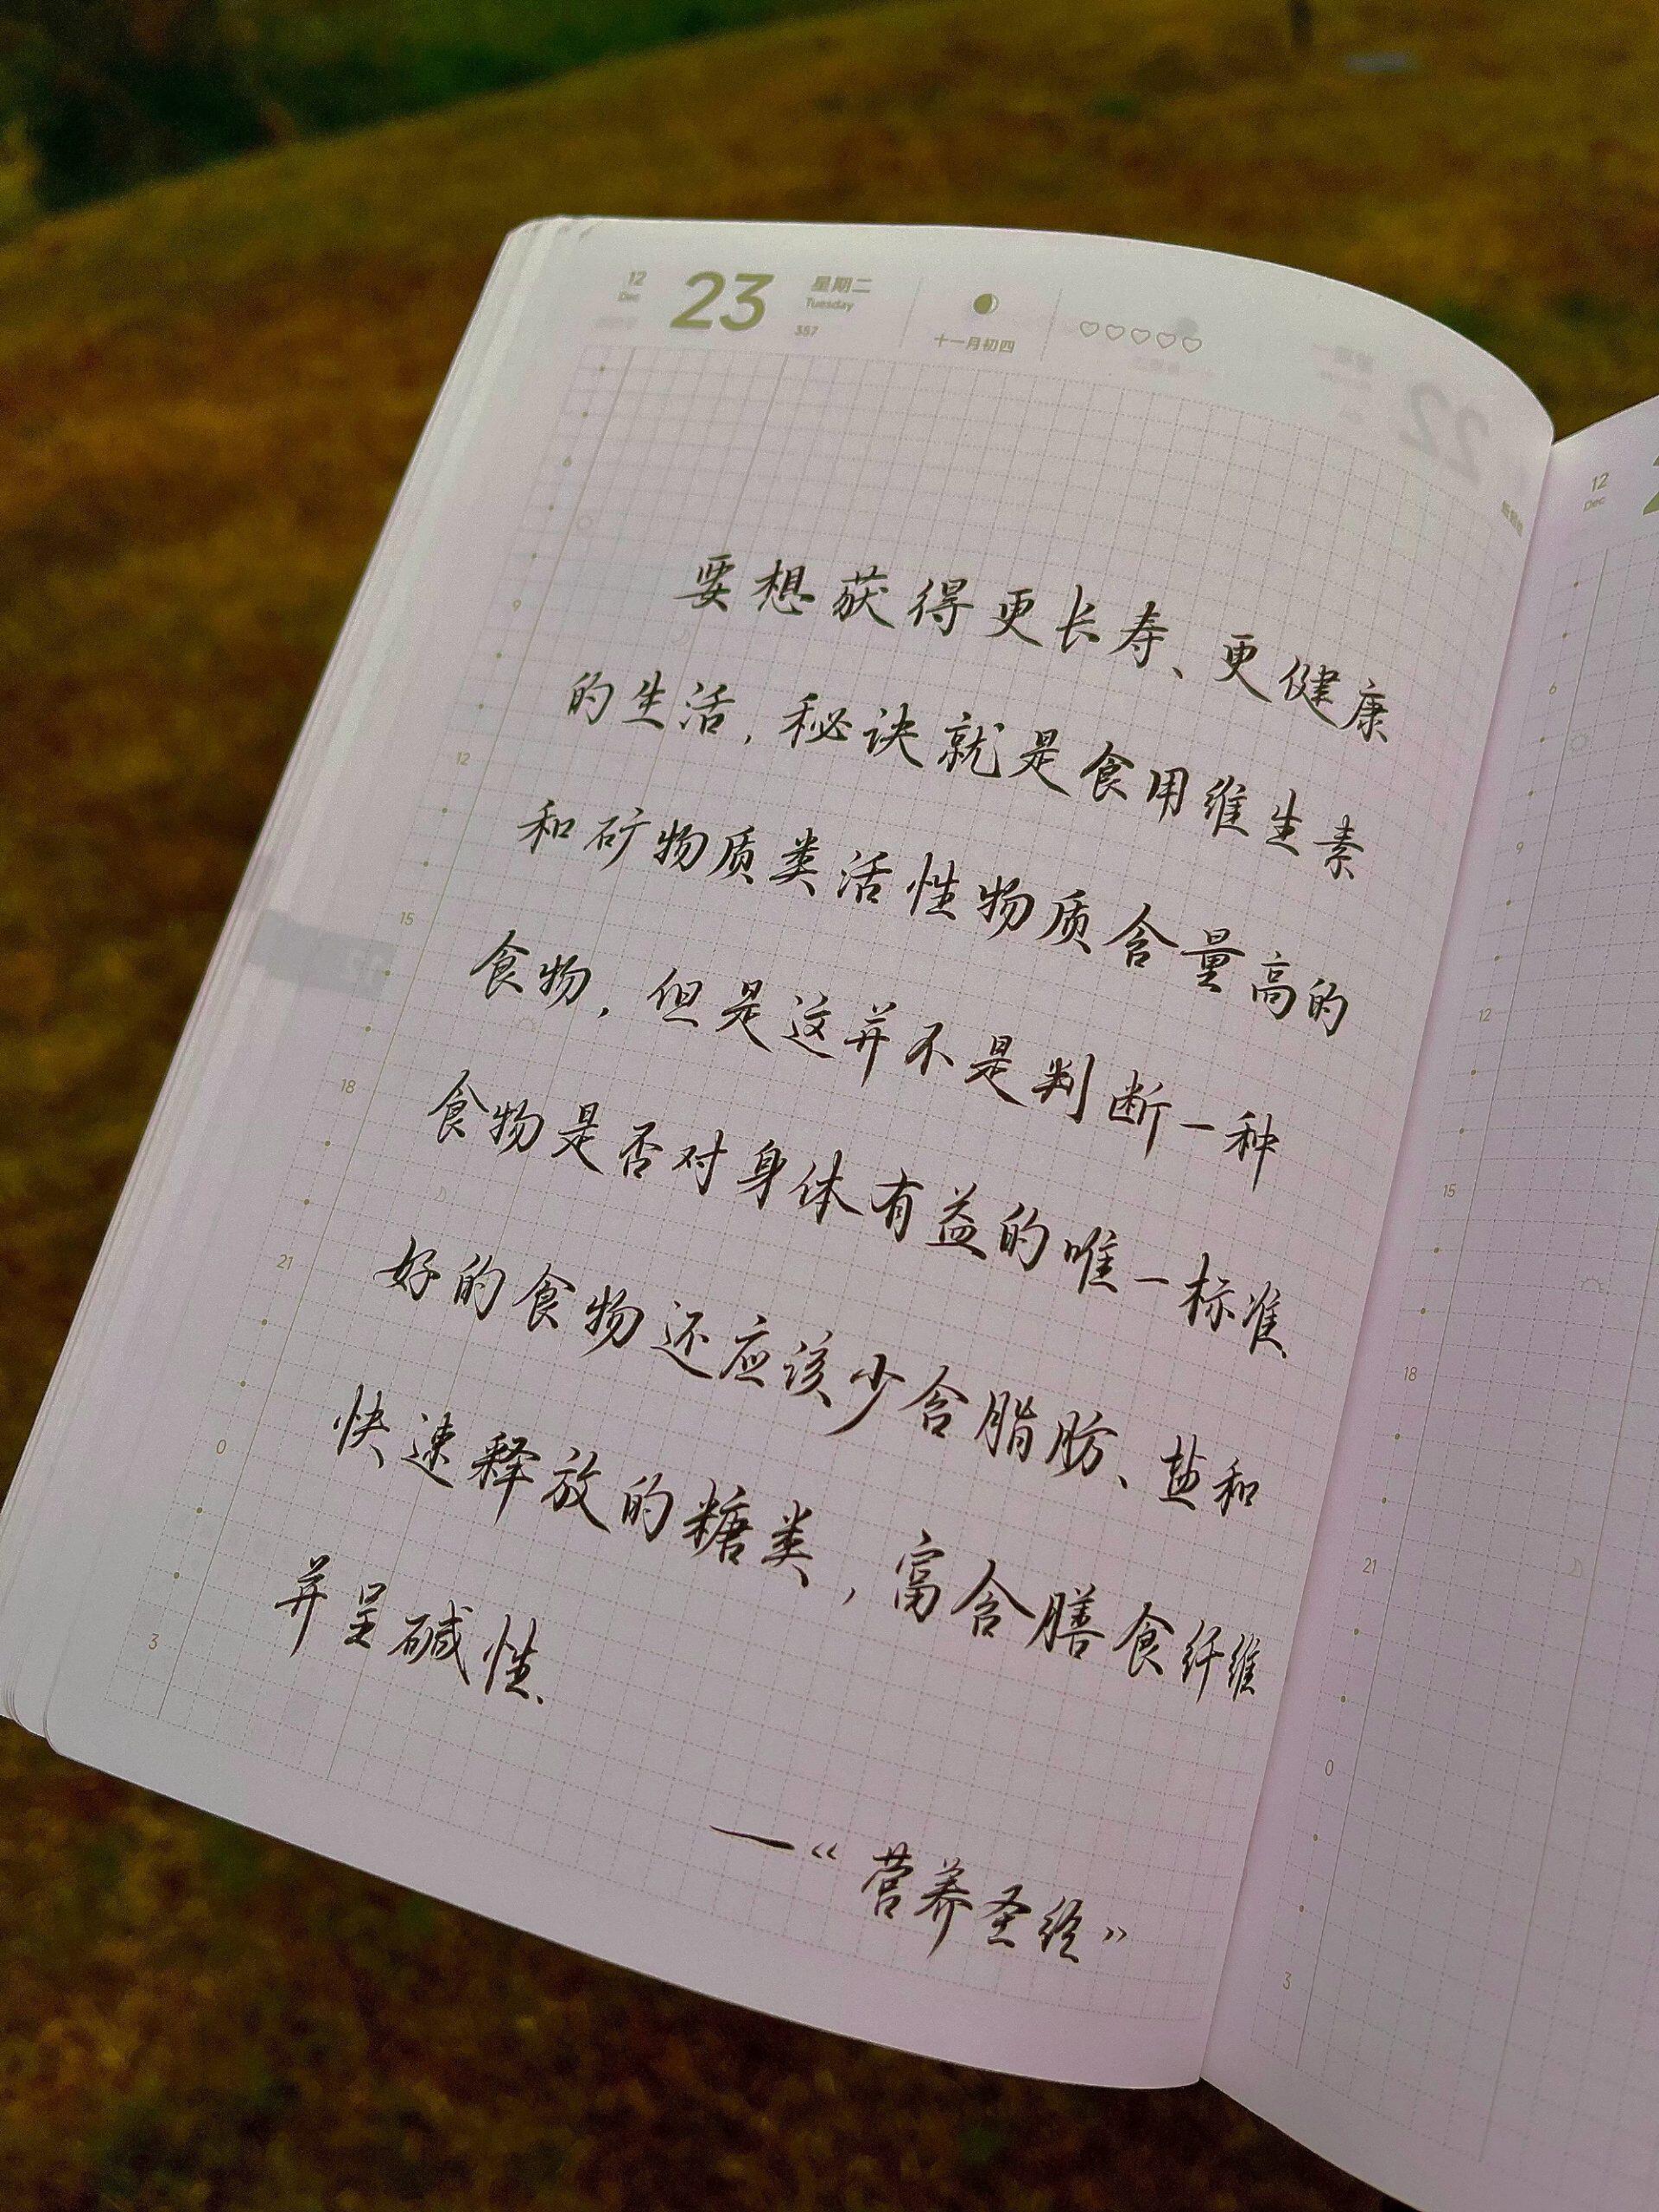 12
Dec
23
星期二
Tuesday
357
十一月初四
要想获得更长寿、更健康
的生活，秘诀就是食用维生素
和矿物质类活性物质含量高的
食物，但是这并不是判断一种
食物是否对身体有益的唯一标准、
好的食物还应该少含脂肪、盐和
快速释放的糖类，富含膳食纤维
并呈碱性、
—《营养圣经》
6
9
12
15
18
21
0
3
12
Dec
6
9
12
15
18
21
0
3